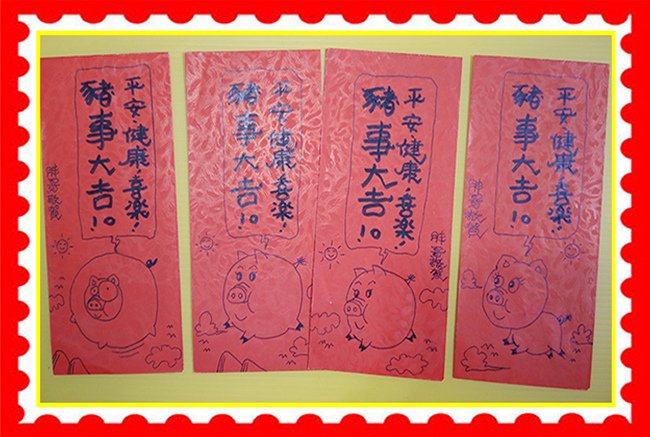 平安、健康、喜樂!
豬事大吉!
敬賀
平安、健康、喜樂!
豬事大吉!
平安、健康、喜樂!
豬事大吉!
敬賀
平安、健康、喜樂!
豬事大吉!
敬賀